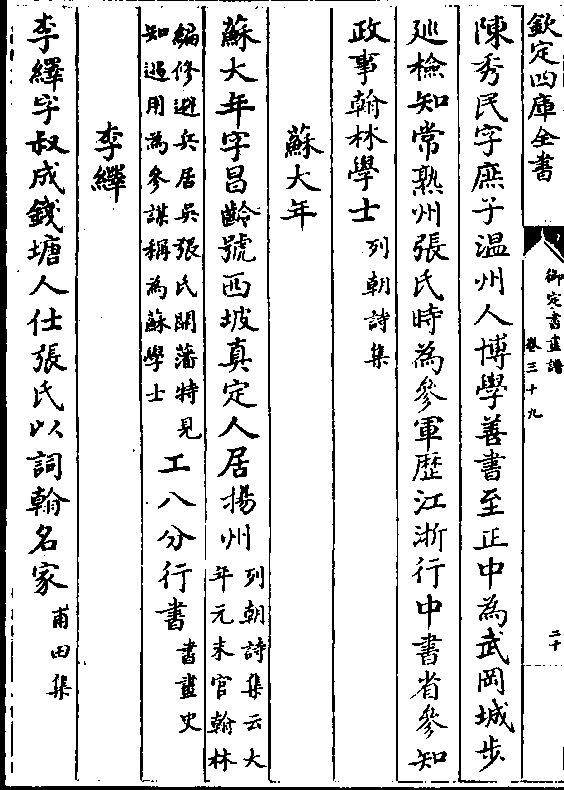 欽定四庫全書
御定書畫譜
卷三十九
二十
陳秀民字庶子温州人博學善書至正中為武岡城步
廵檢知常熟州張氏時為參軍歴江浙行中書省參知
政事翰林學士列朝詩集
蘇大年
蘇大年字昌齡號西坡真定人居揚州列朝詩集云大年元末官翰林
編修避兵居吳張氏開藩特見知遇用為參謀稱為蘇學士工八分行書書畫史
李繹
李繹字叔成錢塘人仕張氏以詞翰名家甫田集